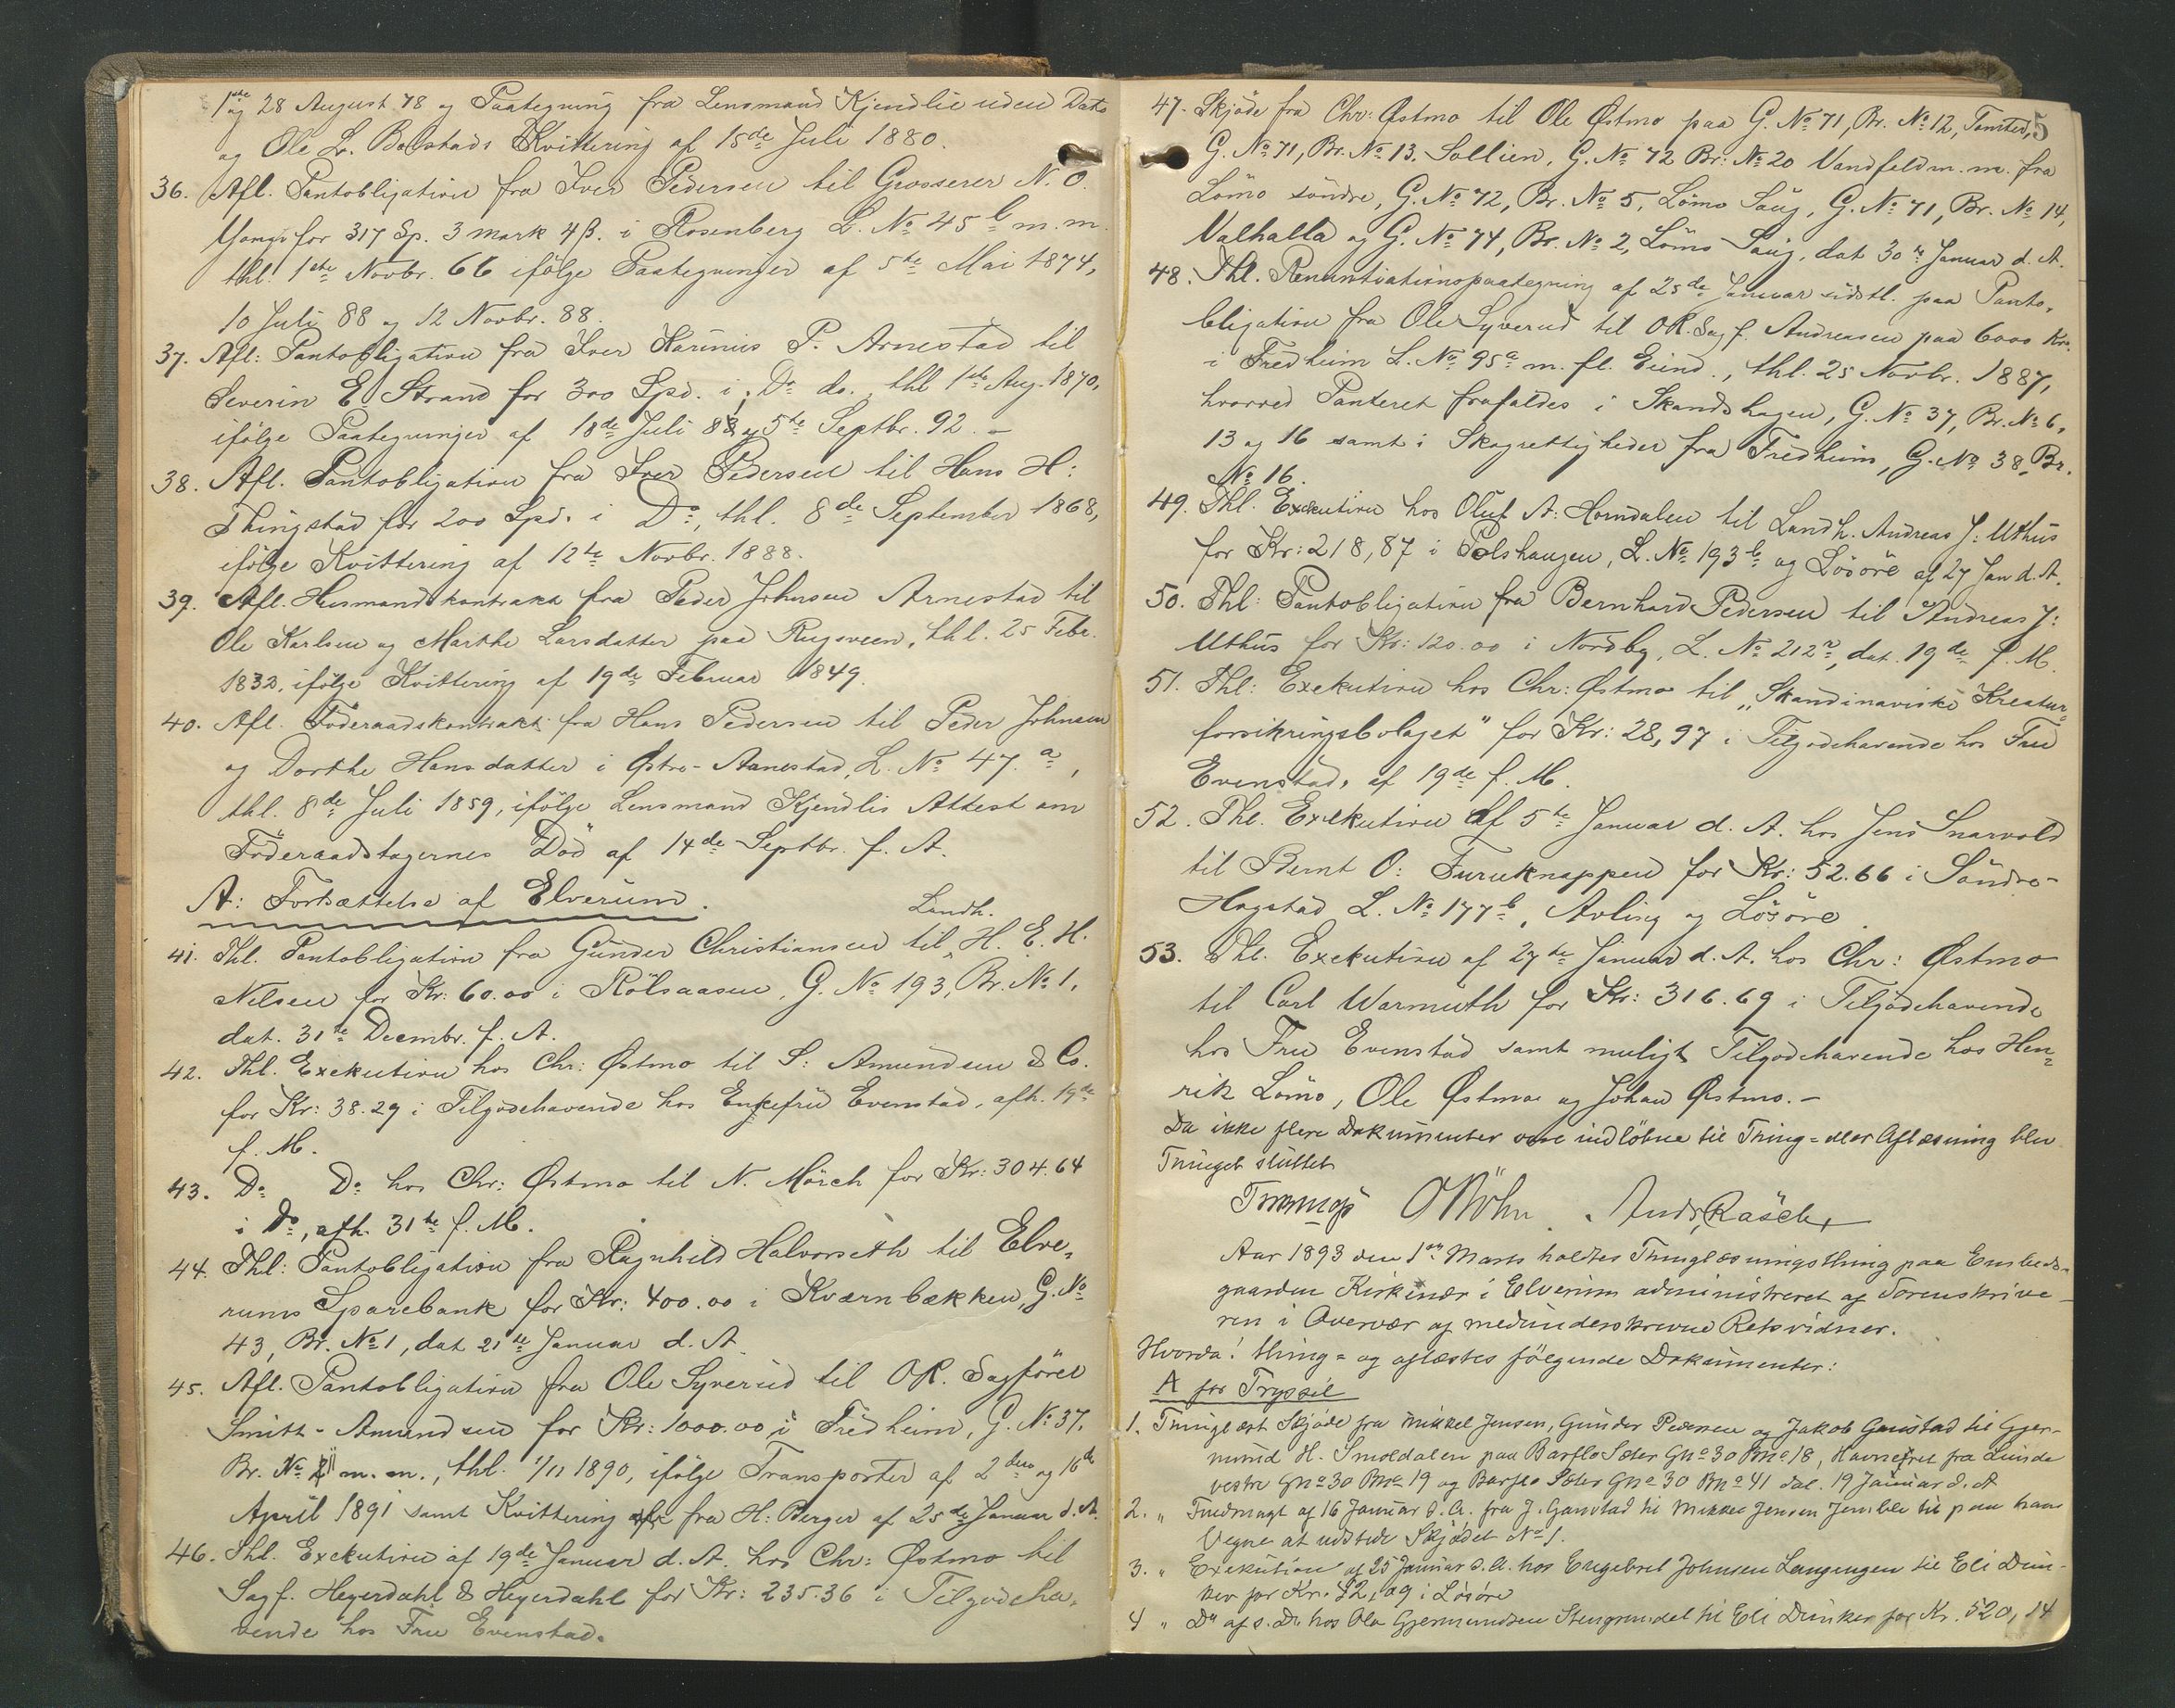 1ste og 28 August 78 og Paategning fra Lensmand Kjendlie uden Dato
og Ole L. Bolstads Kvittering af 15de Juli 1880.
36. Afl. Pantobligation fra Iver Pedersen til Grosserer N. O.
Youngs for 317 Sp. 3 mark 4 β. i Rosenberg L. No 45 b m. m.
thl. 1ste Novbr. 66 ifölge Paategninger af 5te Mai 1874,
10 Juli 88 og 12 Novbr. 88.
37. Afl: Pantobligation fra Iver Karinius P. Arnestad til
Severin E. Strand for 300 Spd. i Do do., thl 1ste Aug. 1870,
ifölge Paategninger af 18de Juli 88 og 5te Septbr. 92. –
38. Afl. Pantobligation fra Iver Pedersen til Hans H:
Thingstad for 200 Spd. i Do, thl. 8de September 1868,
ifölge Kvittering af 12te Novbr. 1888.
39. Afl. Husmandskontrakt fra Peder Johnsen Arnestad til
Ole Karlsen og Marthe Larsdatter paa Rugsveen, thl. 25 Febr.
1832, ifölge Kvittering af 19de Februar 1849.
40. Afl. Föderaadskontrakt fra Hans Pedersen til Peder Johnsen
og Dorthe Hansdatter i Østre-Aanestad, L. No 47. a,
thl. 8de Juli 1859, ifölge Lensmand Kjendlis Attest om
Föderaadstagernes Död af 14de Septbr. f. A.
A: Fortsættelse af Elverum.
41. Thl. Pantobligation fra Gunder Christiansen til Landh. H. E. H.
Nilsen for Kr: 60.00 i Rölsaasen, G. No 193, Br. No 1,
dat. 31te Decmbr. f. A.
42. Thl. Exekution hos Chr: Østmo til S: Amundsen & Co.
for Kr: 38.29 i Tilgodehavende hos Enkefru Evenstad, afh. 19de
f. M.
43. Do Do hos Chr: Østmo til N. Mörch for Kr: 304.64
i Do, afh. 31te f. M.
44. Thl: Pantobligation fra Ragnhild Halvorseth til Elve-
rums Sparebank for Kr: 400.00 i Kværnbækken, G. No
43, Br. No 1, dat 21de Januar d. A.
45. Afl. Pantobligation fra Ole Syverud til OR. Sagförer
Smith-Amundsen for Kr: 1000.00 i Fredheim, G. No 37,
Br. No 11 m. m., thl. 1/11 1890, ifölge Transporter af 2den og 16de
April 1891 samt Kvittering fra H: Berger af 25de Januar d. A.
46. Thl. Exekution af 19de Januar d. A. hos Chr: Østmo til
Sagf. Heyerdahl & Heyerdahl for Kr: 235.36 i Tilgodeha-
vende hos Fru Evenstad.
5
47. Skjöde fra Chr: Østmo til Ole Østmo paa G. No 71, Br. No 12, Tomten,
G. No 71, Br. No 13. Sollien, G. No 72 Br: No 20 Vandfald m. m. fra
Lömo söndre, G. No 72, Br. No 5, Lömo Saug, G. No 71, Br. No 14,
Valhalla og G. No 74, Br. No 2, Lömo Saug, dat 30te Januar d. A.
48. Thl. Renuntiationspaategning af 25de Januar sidstl. paa Panto-
bligation fra Ole Syverud til OR. Sagf. Andreasen paa 6000 Kr.
i Fredheim L. No 95a m. fl. Eiend., thl. 25 Novbr. 1887,
hvorved Panteret frafaldes i Skandshagen, G. No 37, Br. No 6,
13 og 16 samt i Skogrettigheder fra Fredheim, G. No 38, Br.
No 16.
49. Thl. Exekution hos Oluf A: Horndalen til Landh. Andreas J: Uthus
for Kr: 218,87 i Polshaugen, L. No 193 b og Lösöre af 27 Jan d. A.
50. Thl: Pantobligation fra Bernhard Pedersen til Andreas J:
Uthus for Kr: 120.00 i Nordby, L. No 212a, dat. 19de f. M.
51. Thl: Exekution hos Chr: Østmo til „Skandinaviske Kreatur-
forsikringsbolaget” for Kr: 28,97 i Tilgodehavende hos Fru
Evenstad, af 19de f. M.
52. Thl. Exekution af 5te Januar d. A. hos Jens Snarvold
til Bernt O: Furuknappen for Kr: 52.66 i Söndre-
Hagstad L. No 177b, Avling og Lösöre.
53. Thl. Exekution af 27de Januar d. A. hos Chr: Østmo
til Carl Warmuth for Kr: 316.69 i Tilgodehavende
hos Fru Evenstad samt muligt Tilgodehavende hos Hen-
rik Lömo, Ole Østmo og Johan Østmo. –
Da ikke flere Dokumenter vare indlöbne til Thing- eller Aflæsning blev
Thinget sluttet
Andr. Rasch
Aar 1893 den 1ste Marts holdtes Thinglæsningsthing paa Embeds-
gaarden Kirkenær i Elverum administreret af Sorenskrive-
ren i Overvær af medunderskrevne Retsvidner.
Hvorda: thing- og aflæstes fölgende Dokumenter:
A for Trysil
1. Thinglæst Skjöde fra Mikkel Jensen, Gunder Pedersen og Jakob Galaastad til Gjer-
mund H. Smoldalen paa Barflo Sæter Gno 30 Bno 18, Havneret fra Lunde
vestre Gno 30 Bno 19 og Barflo Sæter Gno 30 Bno 41 dat. 19 Januar d. A
2. " Fuldmagt af 16 Januar d. A. fra J. til Mikkel Jensen til paa hans
Vegne at udstede Skjödet No 1.
3. " Exekution af 25 Januar d. A. hos Engebret Johnsen til Eli Dun-
ker for Kr. 52,09 i Lösöre
4 " Do af s. D. hos Ola Gjermundsen til Eli Dunker for Kr. 520,14